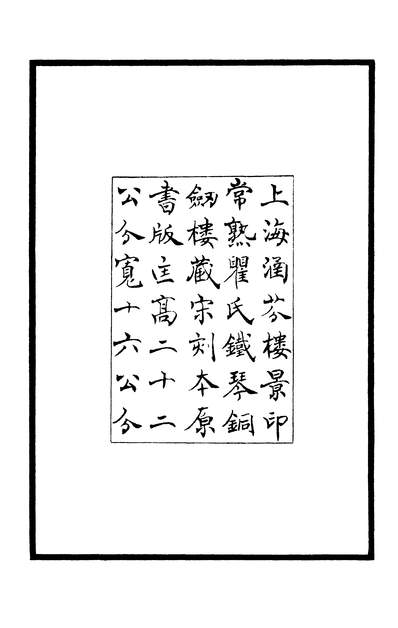 上海涵芬樓景印
常熟瞿氏鐵琴銅
劒樓藏宋刻本原
書版匡高二十二
公分寬十六公分